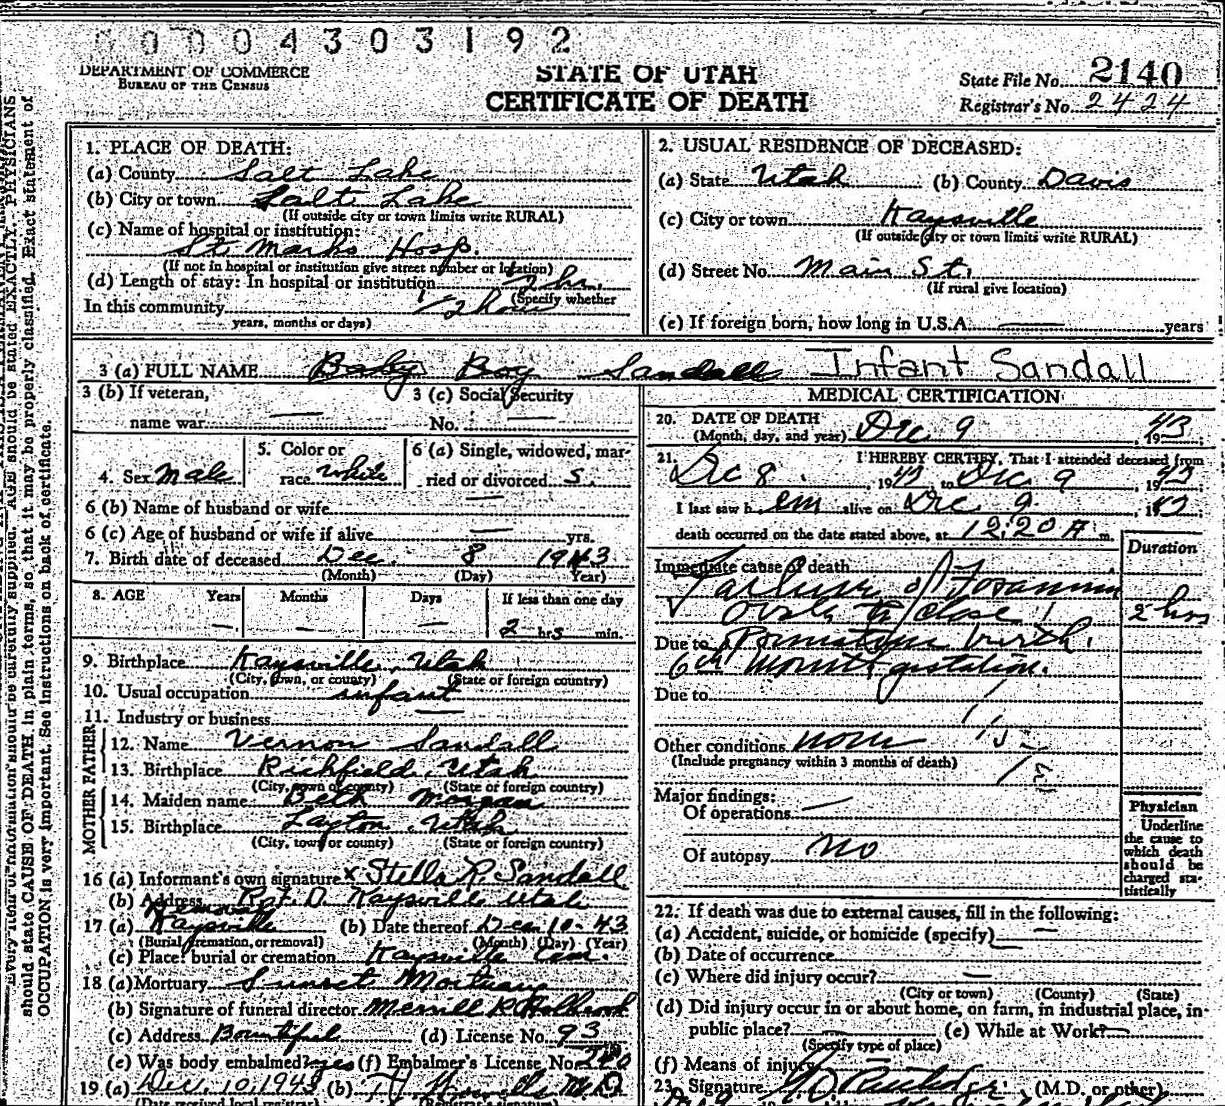 0 0 0 0 4 3 0 3 1 9 2
DEPARTMENT OF COMMERCE
BUREAU OF THE CENSUS
STATE OF UTAH
CERTIFICATE OF DEATH
State File No. 2140
Registrar's No. 2424
1. PLACE OF DEATH:
(a) County Salt Lake
(b) City or town Salt Lake
(If outside city or town limits write RURAL)
(c) Name of hospital or institution:
St Marks Hosp.
(If not in hospital or institution give street number or location)
(d) Length of stay: In hospital or institution 2 hr.
(Specify whether
In this community 1/2 hour
years, months or days)
2. USUAL RESIDENCE OF DECEASED:
(a) State Utah (b) County Davis
(c) City or town Kaysville
(If outside city or town limits write RURAL)
(d) Street No. Main St.
(If rural give location)
(e) If foreign born, how long in U.S.A. — years
3 (a) FULL NAME Baby Boy Sandall Infant Sandall
3 (b) If veteran,
name war —
3 (c) Social Security
No. —
4. Sex Male
5. Color or
race white
6 (a) Single, widowed, mar-
ried or divorced S.
6 (b) Name of husband or wife —
6 (c) Age of husband or wife if alive — yrs.
7. Birth date of deceased Dec. 8 1943
(Month) (Day) Year)
8. AGE Years Months Days If less than one day
— — — 2 hrs min.
9. Birthplace Kaysville, Utah
(City, town, or county) (State or foreign country)
10. Usual occupation infant
11. Industry or business —
FATHER
12. Name Vernon Sandall
13. Birthplace Richfield, Utah
(City, town or county) (State or foreign country)
MOTHER
14. Maiden name Beth Morgan
15. Birthplace Layton, Utah
(City, town or county) (State or foreign country)
16 (a) Informant's own signature x Stella R. Sandall
(b) Address Rt. D. Kaysville Utah
Removal
17 (a) Kaysville (b) Date thereof Dec. 10-43
(Burial, cremation, or removal) (Month) (Day) (Year)
(c) Place: burial or cremation Kaysville Cem.
18 (a) Mortuary Sunset Mortuary
(b) Signature of funeral director Merrill R Holbrook
(c) Address Bountiful (d) License No. 93
(e) Was body embalmed? yes (f) Embalmer's License No.
19 (a) Dec. 10, 1943 (b) M.D.
(Date received local registrar) (Registrar's signature)
MEDICAL CERTIFICATION
20. DATE OF DEATH
(Month, day, and year) Dec 9, 1943
21. I HEREBY CERTIFY, That I attended deceased from
Dec 8, 1943 to Dec 9, 1943
I last saw h em alive on Dec 9, 1943
death occurred on the date stated above, at 12:20 A m.
Duration
Immediate cause of death
Failure of Foramun
Ovale to close 2 hrs
Due to Premature birth.
6th month gestation.
Due to
Other conditions none
(Include pregnancy within 3 months of death)
Major findings:
Of operations —
Of autopsy no
Physician
Underline
the cause to
which death
should be
charged sta-
tistically
22. If death was due to external causes, fill in the following:
(a) Accident, suicide, or homicide (specify) —
(b) Date of occurrence —
(c) Where did injury occur? —
(City or town) (County) (State)
(d) Did injury occur in or about home, on farm, in industrial place, in
public place? — (e) While at Work? —
(Specify type of place)
(f) Means of injury —
23. Signature (M.D. or other)
should state CAUSE OF DEATH in plain terms, so that it may be properly classified. Exact statement of
OCCUPATION is very important. See instructions on back of certificate.